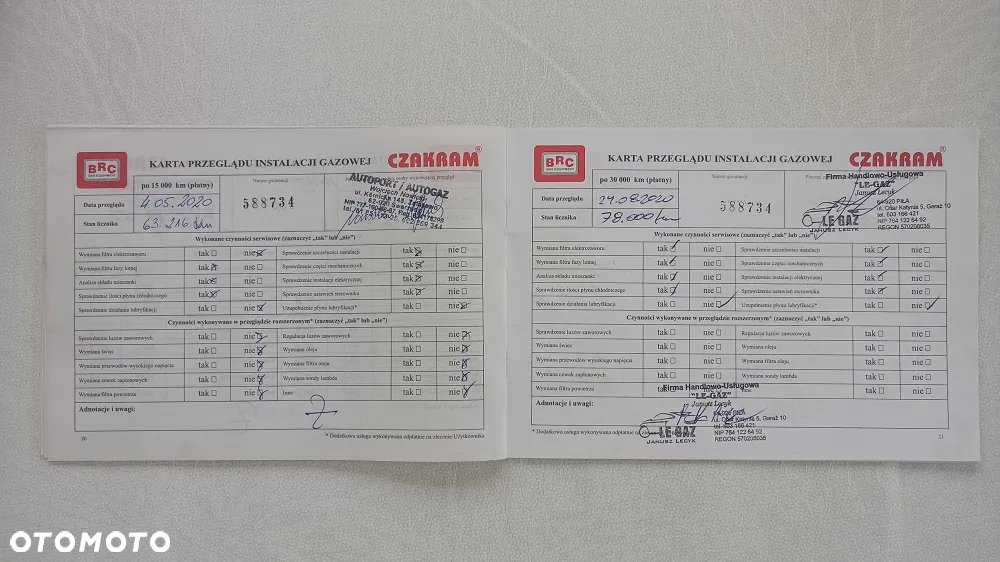 BRC
GAS EQUIPMENT
KARTA PRZEGLĄDU INSTALACJI GAZOWEJ
CZAKRAM®
po 15 000 km (płatny)
Numer gwarancji
Data przeglądu 4.05.2020
588734
Stan licznika 63.216 km
AUTOPORT / AUTOGAZ
Wojciech
ul. Kórnicka 148,
Wykonane czynności serwisowe (zaznaczyć „tak" lub „nie")
Wymiana filtra elektrozaworu tak nie Sprawdzenie szczelności instalacji tak nie
Wymiana filtra fazy lotnej tak nie Sprawdzenie części mechanicznych tak nie
Analiza składu mieszanki tak nie Sprawdzenie instalacji elektrycznej tak nie
Sprawdzenie ilości płynu chłodniczego tak nie Sprawdzenie ustawień sterownika tak nie
Sprawdzenie działania lubryfikacji tak nie Uzupełnienie płynu lubryfikacji* tak nie
Czynności wykonywane w przeglądzie rozszerzonym* (zaznaczyć „tak" lub „nie")
Sprawdzenie luzów zaworowych tak nie Regulacja luzów zaworowych tak nie
Wymiana świec tak nie Wymiana oleju tak nie
Wymiana przewodów wysokiego napięcia tak nie Wymiana filtra oleju tak nie
Wymiana cewek zapłonowych tak nie Wymiana sondy lambda tak nie
Wymiana filtra powietrza tak nie Inne tak nie
Adnotacje i uwagi:
* Dodatkowa usługa wykonywana odpłatnie na zlecenie Użytkownika
20
BRC
GAS EQUIPMENT
KARTA PRZEGLĄDU INSTALACJI GAZOWEJ
CZAKRAM®
po 30 000 km (płatny)
Numer gwarancji
Data przeglądu 24.08.2020
588734
Stan licznika 78.000 km
Firma Handlowo-Usługowa
"LE-GAZ"
Janusz Lecyk
64-920 PIŁA
ul. Ofiar Katynia 5, Garaż 10
tel. 603 166 421
NIP 764 122 64 92
REGON 570208035
LE-GAZ
JANUSZ LECYK
Wykonane czynności serwisowe (zaznaczyć „tak" lub „nie")
Wymiana filtra elektrozaworu tak nie Sprawdzenie szczelności instalacji tak nie
Wymiana filtra fazy lotnej tak nie Sprawdzenie części mechanicznych tak nie
Analiza składu mieszanki tak nie Sprawdzenie instalacji elektrycznej tak nie
Sprawdzenie ilości płynu chłodniczego tak nie Sprawdzenie ustawień sterownika tak nie
Sprawdzenie działania lubryfikacji tak nie Uzupełnienie płynu lubryfikacji* tak nie
Czynności wykonywane w przeglądzie rozszerzonym* (zaznaczyć „tak" lub „nie")
Sprawdzenie luzów zaworowych tak nie Regulacja luzów zaworowych tak nie
Wymiana świec tak nie Wymiana oleju tak nie
Wymiana przewodów wysokiego napięcia tak nie Wymiana filtra oleju tak nie
Wymiana cewek zapłonowych tak nie Wymiana sondy lambda tak nie
Wymiana filtra powietrza tak nie tak nie
Adnotacje i uwagi:
Firma Handlowo-Usługowa
"LE-GAZ"
Janusz Lecyk
64-920 PIŁA
ul. Ofiar Katynia 5, Garaż 10
tel. 603 166 421
NIP 764 122 64 92
REGON 570208035
LE-GAZ
JANUSZ LECYK
* Dodatkowa usługa wykonywana odpłatnie
21
OTOMOTO